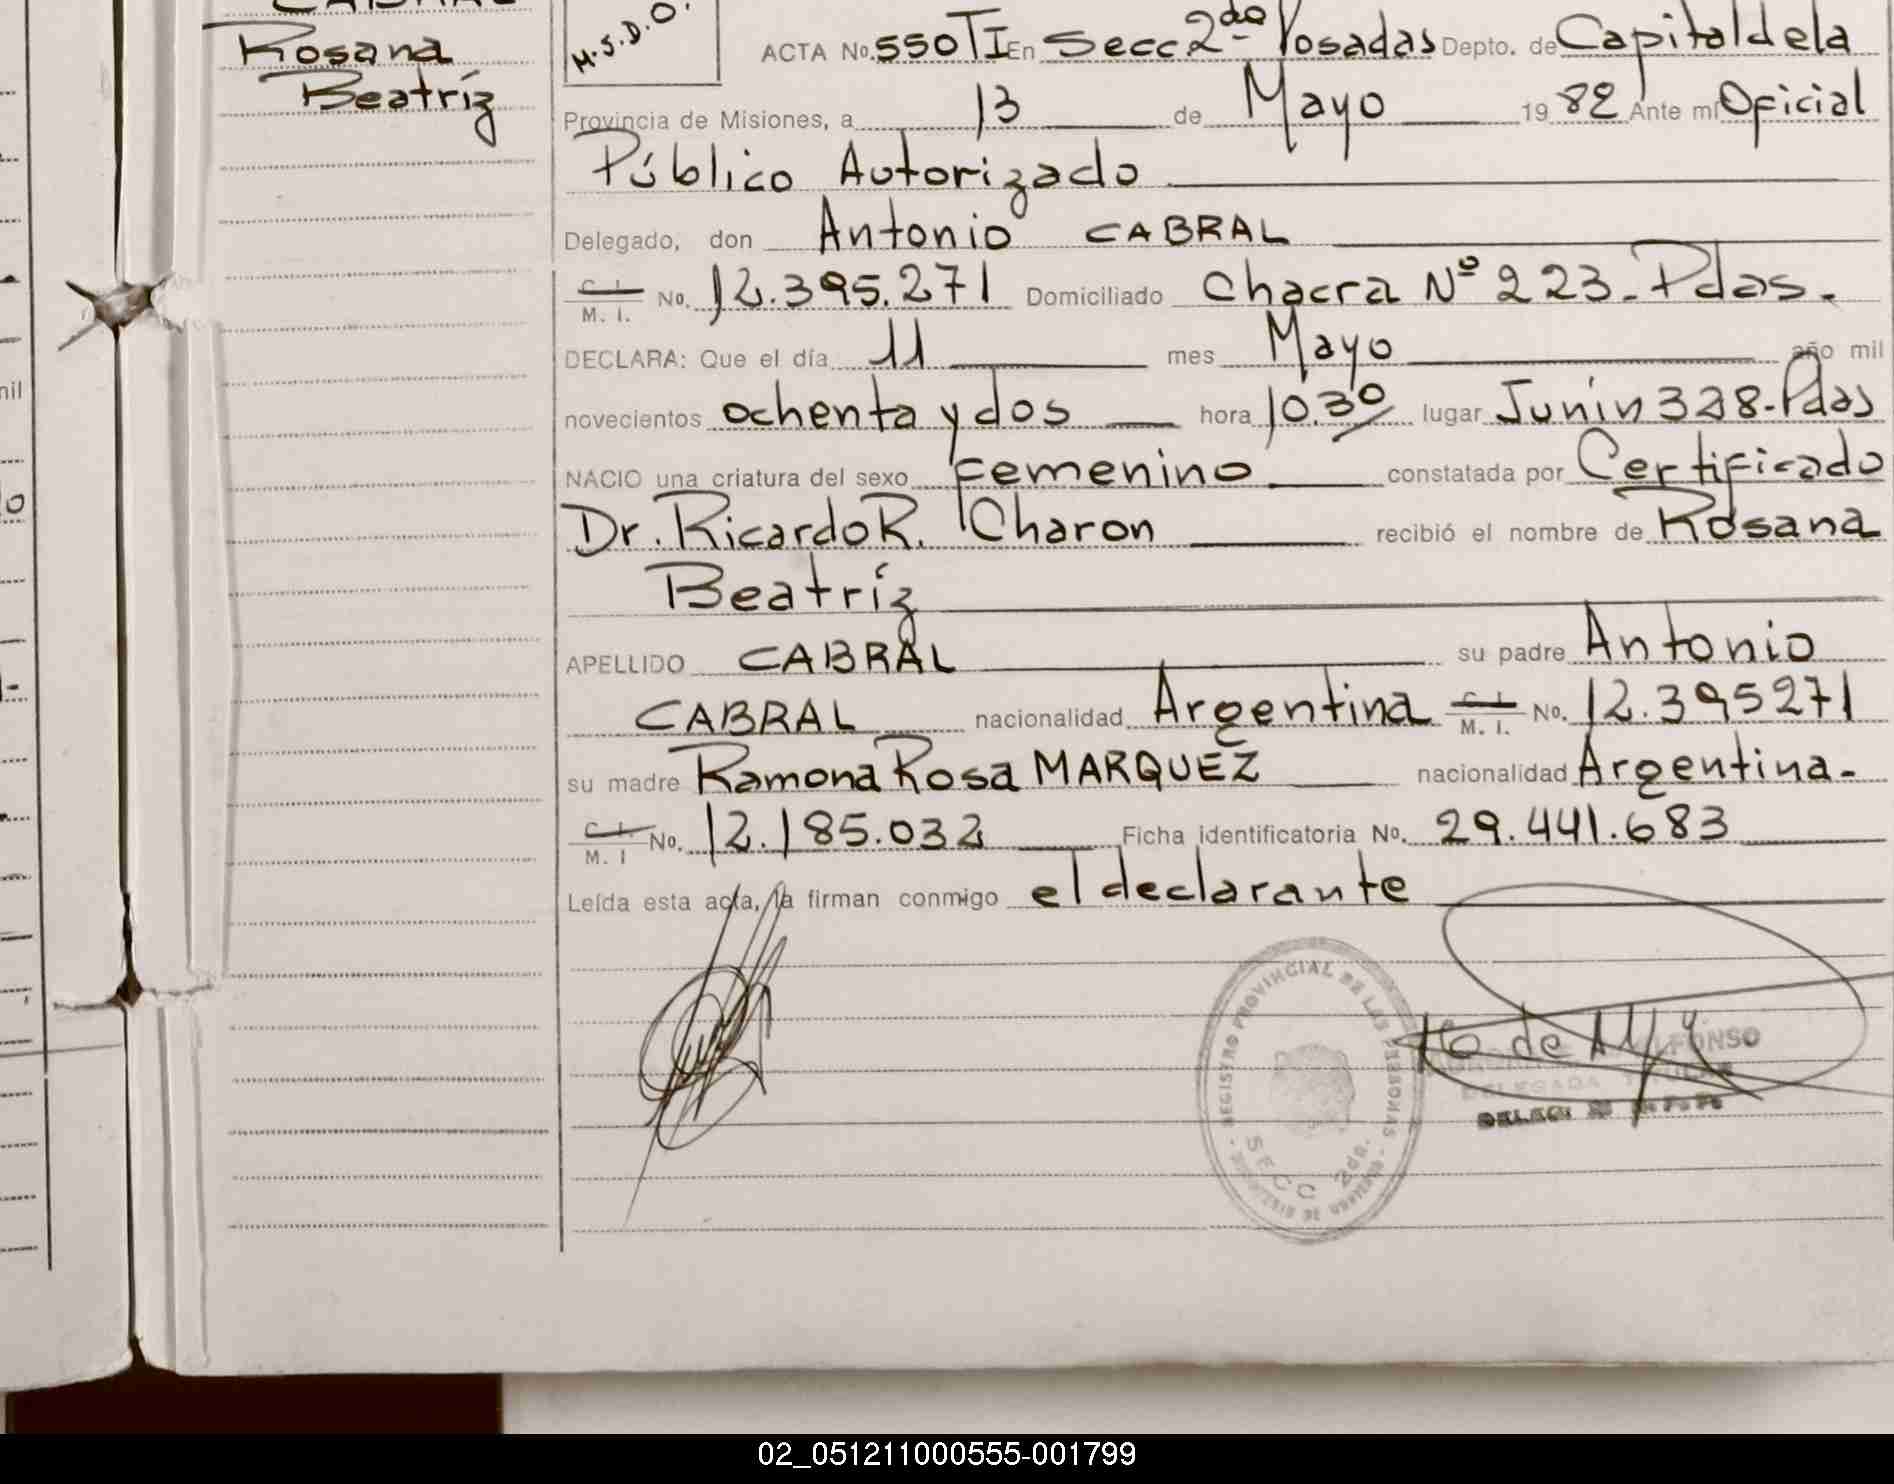 Rosana
Beatríz
M.S.D.O.
ACTA No. 550 TI En Secc 2da Posadas Depto. de Capital de la
Provincia de Misiones, a 13 de Mayo 19 82 Ante mí Oficial
Público Autorizado
Delegado, don Antonio CABRAL
C. I. M. I. No. 12.395.271 Domiciliado Chacra Nº 223 - Pdas.
DECLARA: Que el día 11 mes Mayo año mil
novecientos ochenta y dos hora 10.30 lugar Junín 328 - Pdas
NACIO una criatura del sexo Femenino constatada por Certificado
Dr. Ricardo R. Charon recibió el nombre de Rosana
Beatríz
APELLIDO CABRAL su padre Antonio
CABRAL nacionalidad Argentina C. I. M. I. No. 12.395271
su madre Ramona Rosa MARQUEZ nacionalidad Argentina.-
C. I. M. I No. 12.185.032 Ficha identificatoria No. 29.441.683
Leída esta acta, la firman conmigo el declarante
REGISTRO PROVINCIAL DE LAS PERSONAS
SECC 2da.
DELEGADA TITULAR
02_051211000555-001799